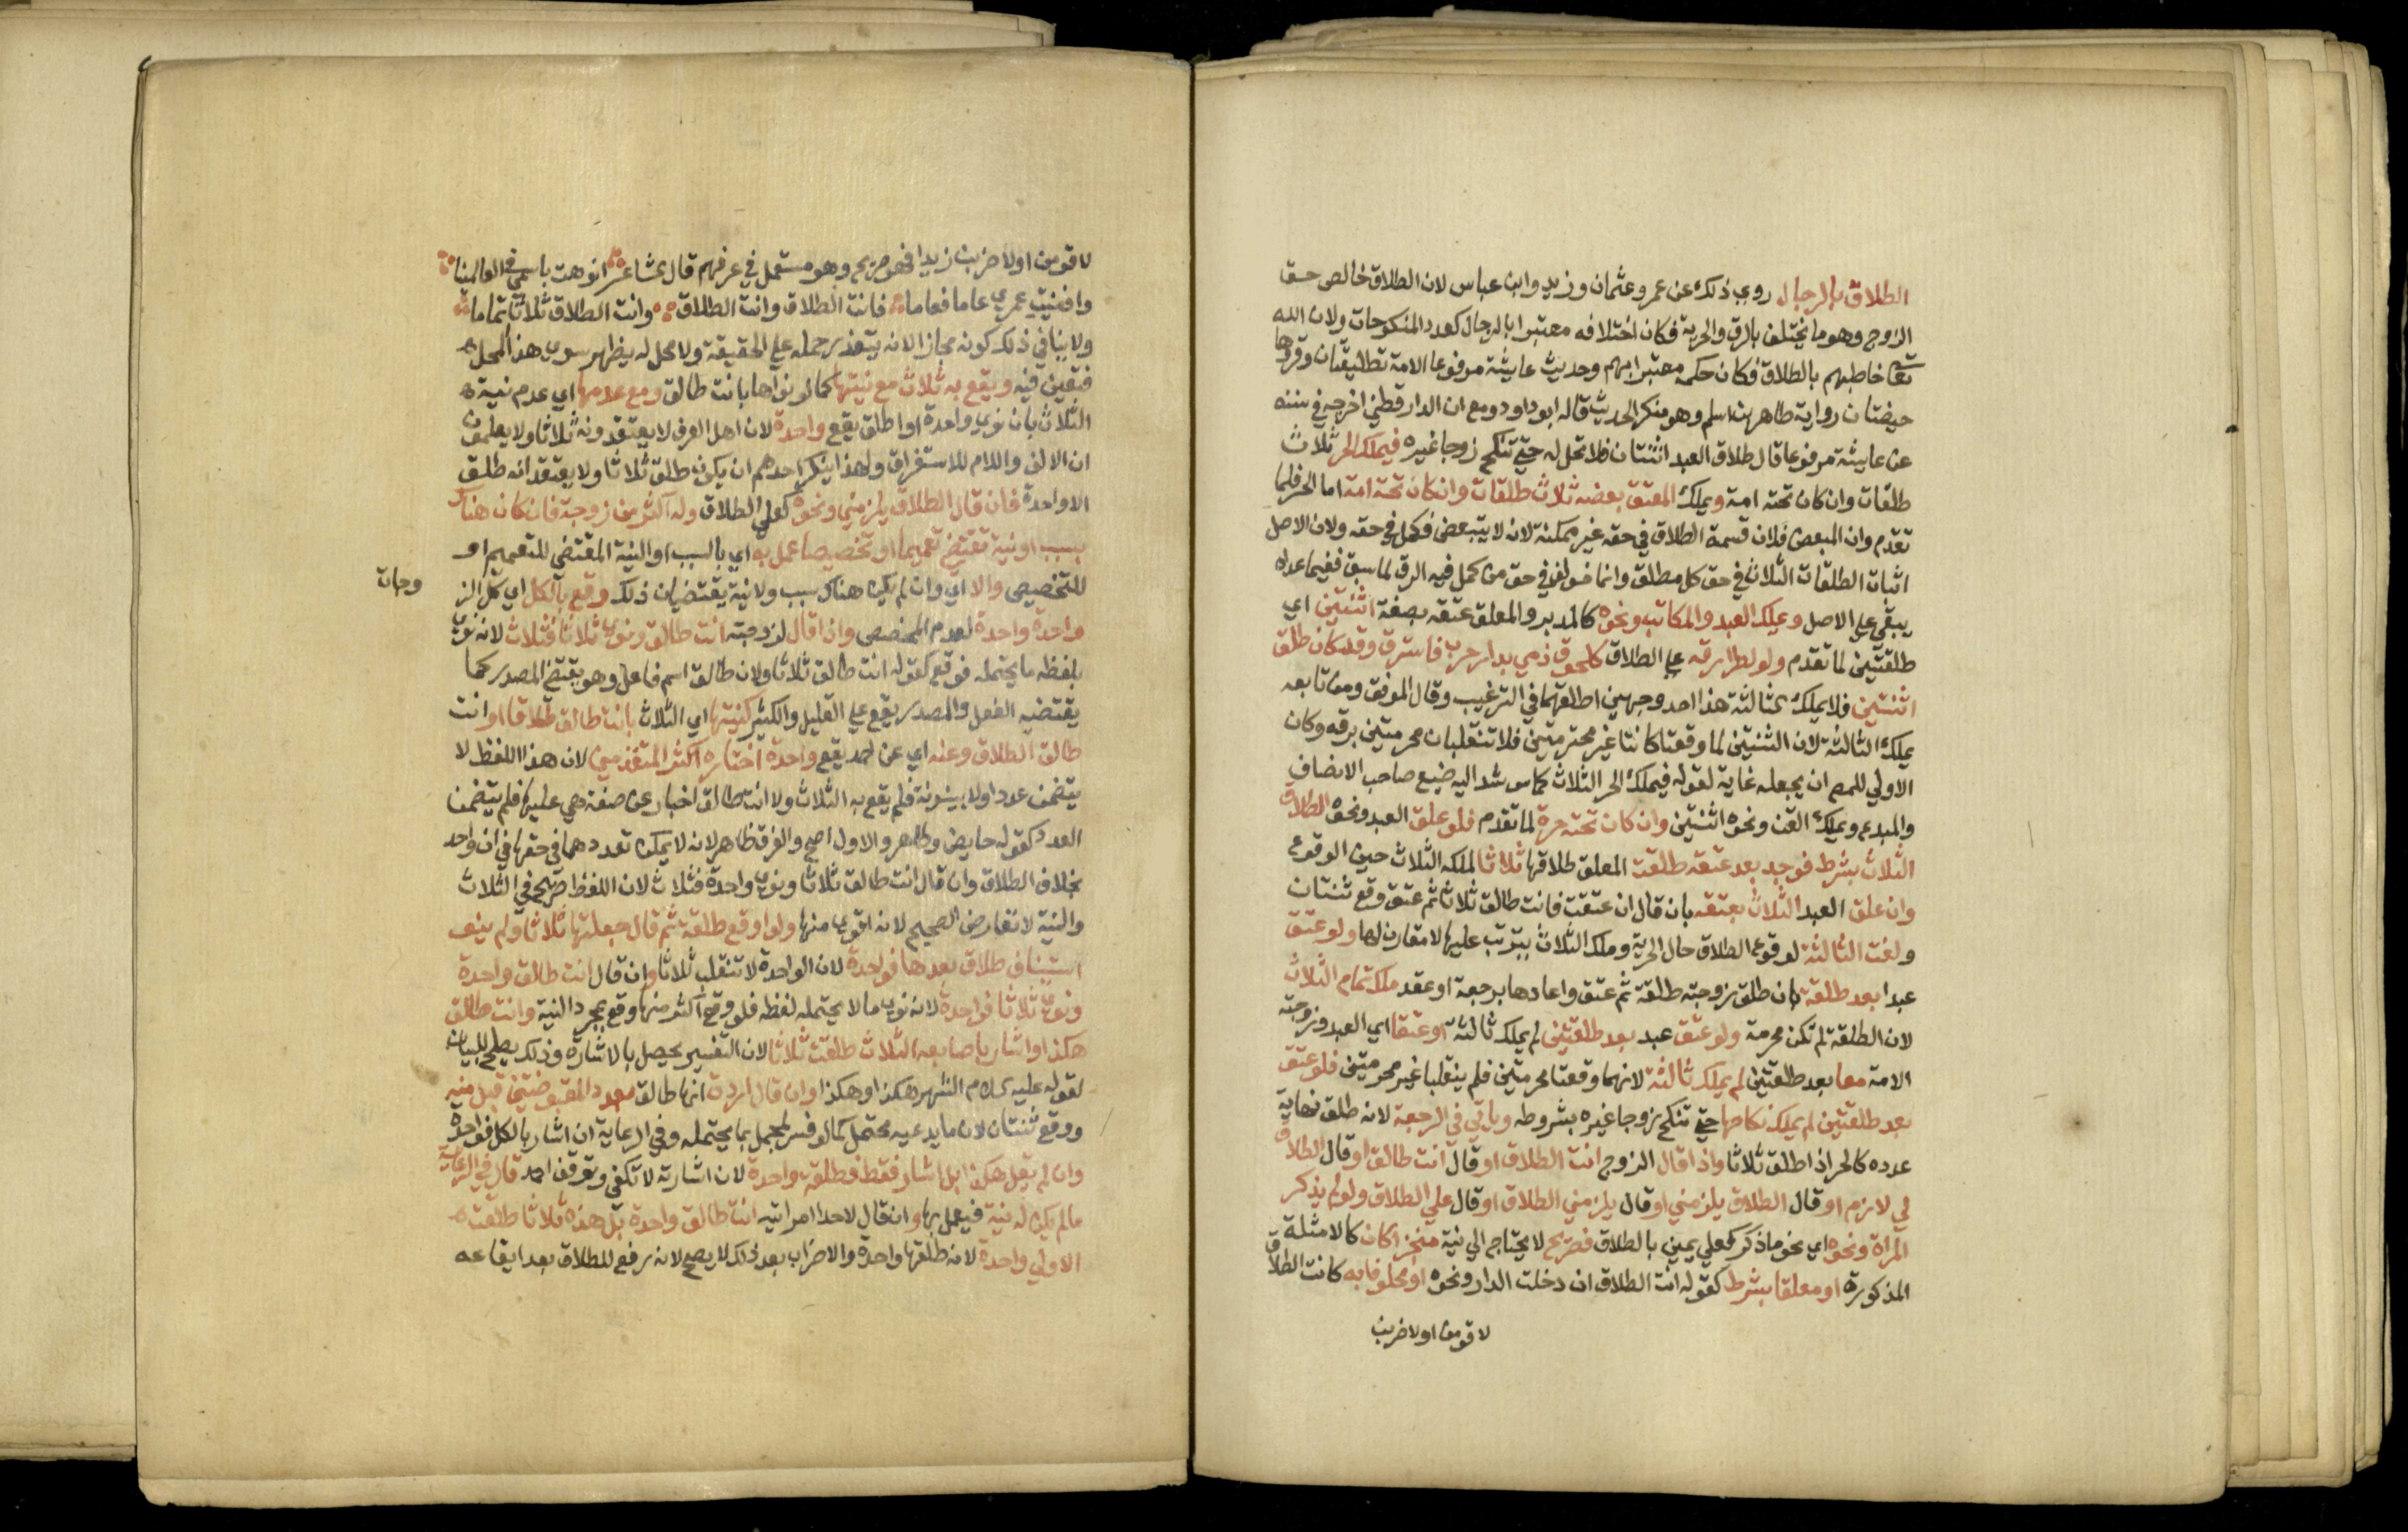 الطلاق بالرجال روي ذلك عن عمر وعثمان وزيد وابن عباس لان الطلاق خالص حق
الزوج وهو ما يختلف بالرق والحرية فكان اختلافه معتبرا بالرجال كعدد المنكوحات ولان الله
تعا خاطبهم بالطلاق فكان حكمه معتبرا بهم وحديث عايشة مرفوعا الامة تطليقتان وقروها
حيضتان رواية طاهر بن اسلم وهو منكر الحديث قاله ابو داود ومع ان الدارقطني اخرجه في سننه
عن عايشة مرفوعا قال طلاق العبد اثنتان فلا تحل له حتي تنكح زوجا غيره فيملك الحر ثلاث
طلقات وان كان تحته امة ويملك المعتق بعضه ثلاث طلقات وان كان تحته امة اما الحر فلما
تقدم وان المبعض فلان قسمة الطلاق في حقه غير ممكنة لانه لا يتبعض فكمل في حقه ولان الاصل
اثبات الطلقات الثلاث في حق كل مطلق وانما خولف في حق من كمل فيه الرق لما سبق ففيما عداه
يبقي علي الاصل ويملك العبد والمكاتب ونحوه كالمدبر والمعلق عتقه بصفة اثنتين اي
طلقتين لما تقدم ولو طرا رقه علي الطلاق كلحوق ذمي بدار حرب فاسترق وقد كان طلق
اثنتين فلا يملك ثالثة هذا احد وجهين اطلقهما في الترغيب وقال الموفق ومن تابعه
يملك الثالثة لان الثنتين لما وقعتا كانتا غير محرمتين فلا تنقلبان محرمتين برقه وكان
الاولي للمص ان يجعله غاية لقوله فيملك الحر الثلاث كما رشد اليه صنيع صاحب الانصاف
والمبدع ويملك القن ونحوه اثنتين وان كان تحته حرة لما تقدم فلو علق العبد ونحوه الطلاق
الثلاث بشرط فوجد بعد عتقه طلقت المعلق طلاقها ثلاثا لملكه الثلاث حين الوقوع
وان علق العبد الثلاث بعتقه بان قال ان عتقت فانت طالق ثلاثا ثم عتق وقع ثنتان
ولغت الثالثة لوقوع الطلاق حال الحرية وملك الثلاث يترتب عليها لا مقارن لها ولو عتق
عبد بعد طلقة بان طلق زوجته طلقة ثم عتق واعادها برجعة او عقد ملك تمام الثلاث
لان الطلقة لم تكن محرمة ولو عتق عبد بعد طلقتين لم يملك ثالثة او عتقا اي العبد وزوجته
الامة معا بعد طلقتين لم يملك ثالثة لانهما وقعتا محرمتين فلم ينقلبا غير محرمتين فلو عتق
بعد طلقتين لم يملك نكاحها حتي تنكح زوجا غيره بشروطه وياتي في الرجعة لانه طلق نهاية
عدده كالحر اذا طلق ثلاثا واذا قال الزوج انت الطلاق او قال انت طالق او قال الطلاق
لي لازم او قال الطلاق يلزمني او قال يلزمني الطلاق او قال علي الطلاق ولو لم يذكر
المراة ونحوه اي نحو ما ذكر كعلي يمين بالطلاق فصريح لا يحتاج الي نية منجزا كان كالامثلة
المذكورة او معلقا بشرط كقوله انت الطلاق ان دخلت الدار ونحوه او محلوفا به كانت الطلاق
لاقومن او لاضربن
لاقومن او لاضربن زيدا فهو صريح وهو مستعمل في عرفهم قال الشاعر انوهت باسمي في العالمينا
وافنيت عمري عاما فعاما فانت الطلاق وانت الطلاق وانت الطلاق ثلاثا تماما
ولا ينافي ذلك كونه مجازا لانه يتعذر حمله علي الحقيقة ولا محل له يظهر سوي هذا المحل
فتعين فيه ويقع به ثلاث مع نيتها كما لو نواها بانت طالق ومع عدمها اي عدم نية
الثلاث بان نوي واحدة او اطلق يقع واحدة لان اهل العرف لا يعتقدونه ثلاثا ولا يعلمون
ان الالف واللام للاستغراق ولهذا ينكر احدهم ان يكون طلق ثلاثا ولا يعتقد انه طلق
الا واحدة فان قال الطلاق يلزمني ونحوه كعلي الطلاق وله اكثر من زوجة فان كان هناك
سبب او نية تقتضي تعميما او تخصيصا عمل به اي بالسبب او النية المقتضي للتعميم او
للتخصيص والا اي وان لم يكن هناك سبب ولا نية يقتضيان ذلك وقع بالكل اي كل الز
وجات
واحدة واحدة لعدم المخصص وان قال لزوجته انت طالق ونوي ثلاثا فثلاث لانه نوي
بلفظه ما يحتمله فوقع كقوله انت طالق ثلاثا ولان طالق اسم فاعل وهو يقتضي المصدر كما
يقتضيه الفعل والمصدر يقع علي القليل والكثير كنيتها اي الثلاث بانت طالق طلاقا او انت
طالق الطلاق وعنه اي عن احمد يقع واحدة اختاره اكثر المتقدمين لان هذا اللفظ لا
يتضمن عددا ولا بينونة فلم يقع به الثلاث ولا انت طالق اخبار عن صفة هي عليها فلم يتضمن
العدد كقوله حايض وطاهر والاول اصح والفرق ظاهر لانه لا يمكن تعددهما في حقها في ان واحد
بخلاف الطلاق وان قال انت طالق ثلاثا ونوي واحدة فثلاث لان اللفظ صريح في الثلاث
والنية لا تعارض الصريح لانه اقوي منها ولو اوقع طلقة ثم قال جعلتها ثلاثا ولم ينو
استيناف طلاق بعدها فواحدة لان الواحدة لا تنقلب ثلاثا وان قال انت طالق واحدة
ونوي ثلاثا فواحدة لانه نوي ما لا يحتمله لفظه فلو وقع اكثر منها وقع بمجرد النية وانت طالق
هكذا واشار باصابعه الثلاث طلقت ثلاثا لان التفسير يحصل بالاشارة وذلك يصلح للبيان
لقوله عليه السلام الشهر هكذا وهكذا وان قال اردت انها طالق بعدد المقبوضتين قبل منه
ووقع ثنتان لان ما يدعيه محتمل كما لو فسر المجمل بما يحتمله وفي الرعاية ان اشار بالكل فواحدة
وان لم يقل هكذا بل اشار فقط فطلقة واحدة لان اشارته لا تكفي وتوقف احمد قال في الرعاية
مالم يكن له نية فيعمل بها وان قال لاحدا امراتيه انت طالق واحدة بل هذه ثلاثا طلقت
الاولي واحدة لانه طلقها واحدة والاضراب بعد ذلك لا يصح لانه رفع للطلاق بعد ايقاعه